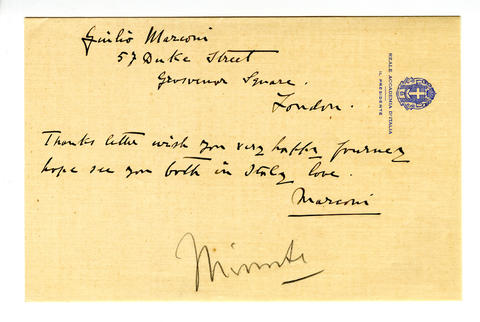 Giulio Marconi
57 Duke Street
Grosvenor Square.
London.
REALE ACCADEMIA D'ITALIA
IL PRESIDENTE
Thanks letter wish you very happy journey
hope see you both in Italy love.
Marconi